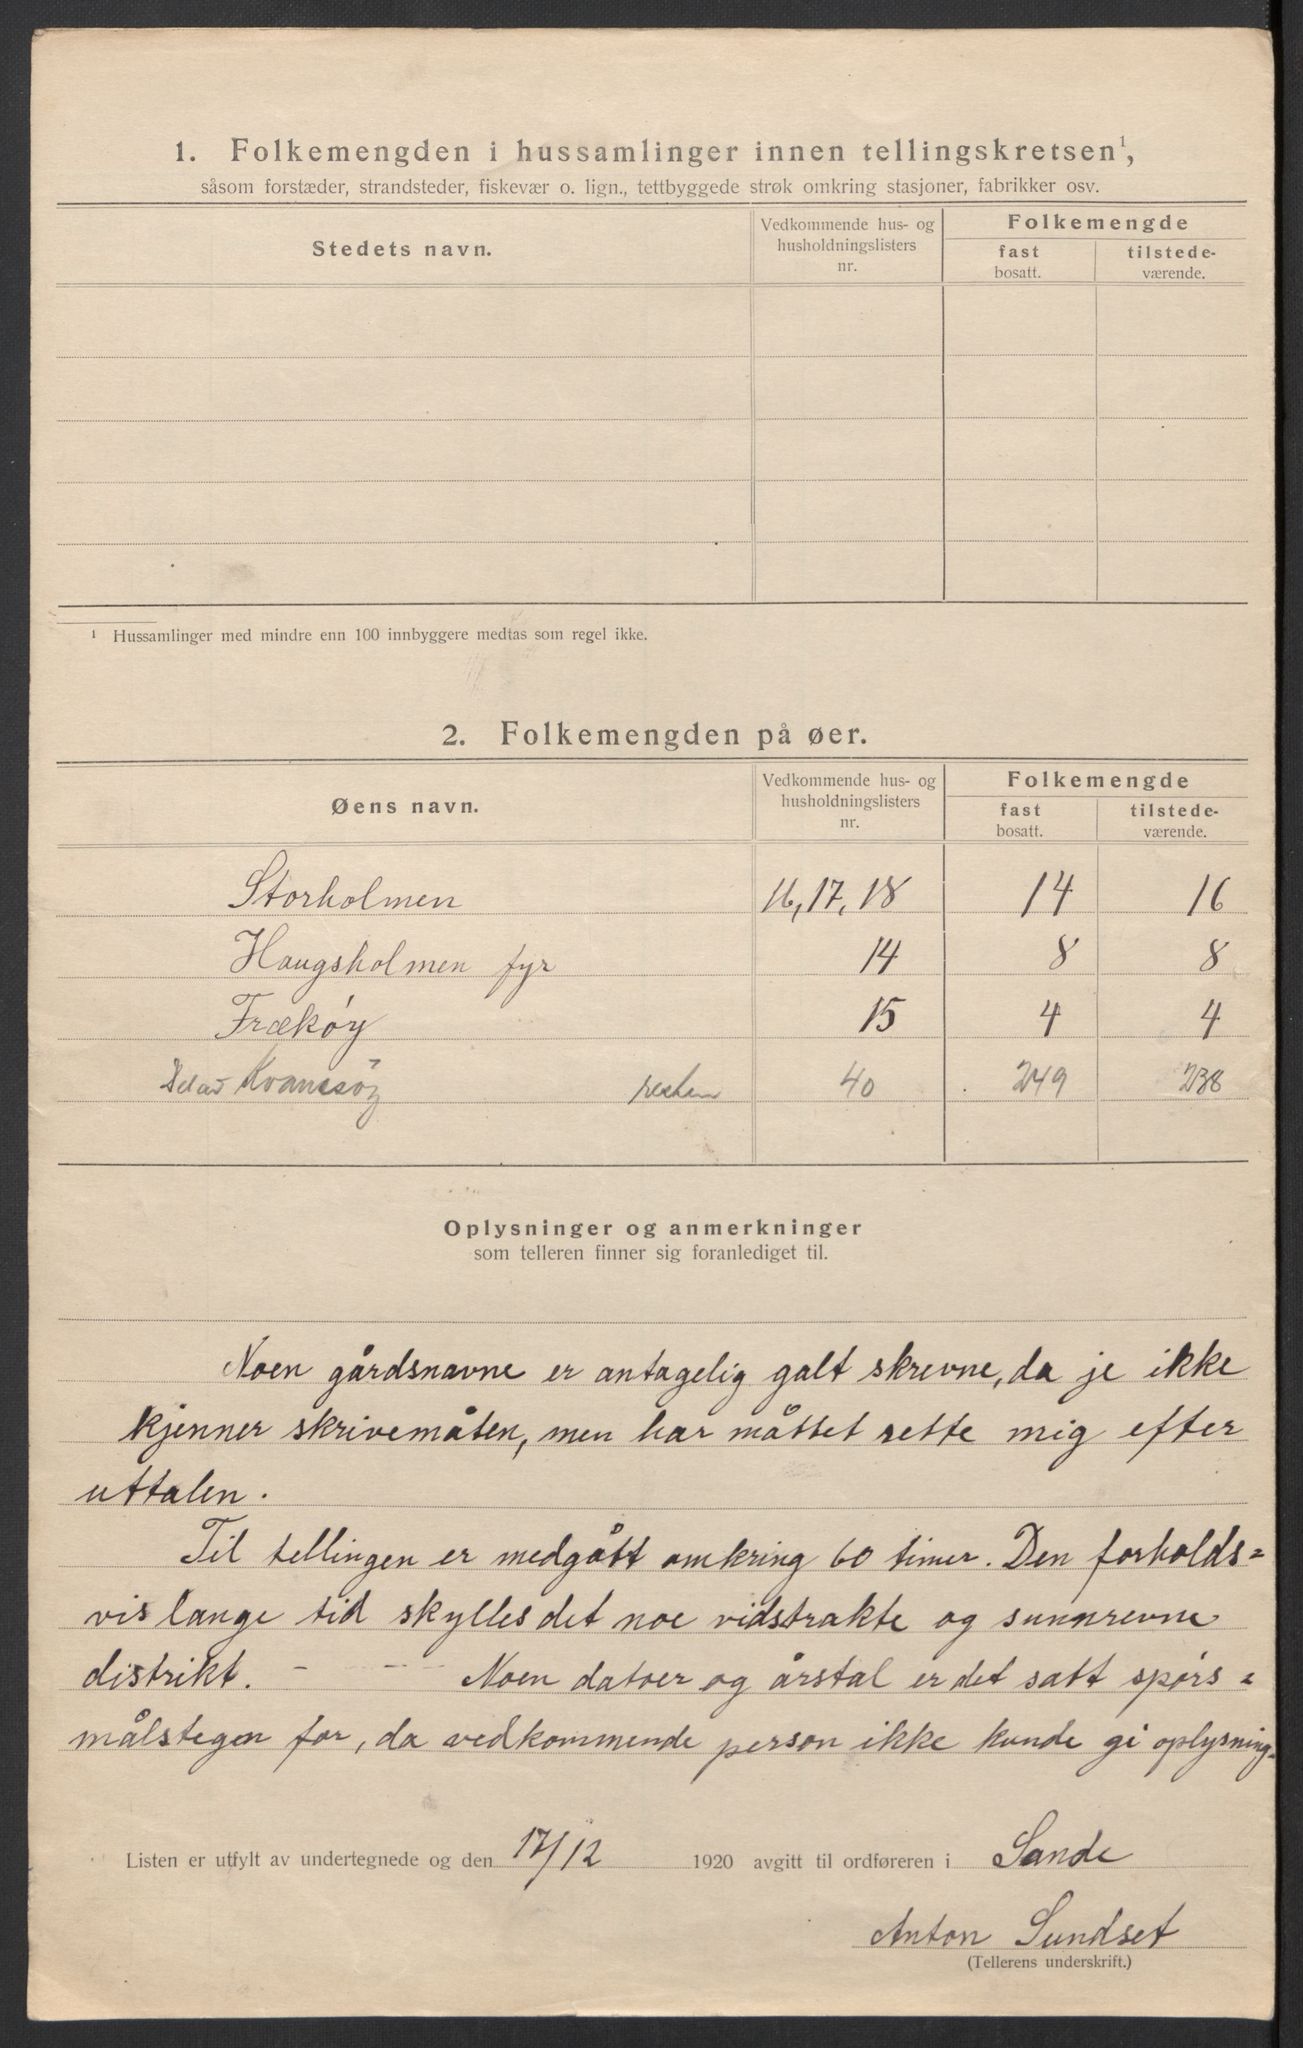 1. Folkemengden i hussamlinger innen tellingskretsen¹,
såsom forstæder, strandsteder, fiskevær o. lign., tettbyggede strøk omkring stasjoner, fabrikker osv.
Stedets navn.
Vedkommende hus- og
husholdningslisters
nr.
Folkemengde
fast
bosatt.
tilstede-
værende.
¹ Hussamlinger med mindre enn 100 innbyggere medtas som regel ikke.
2. Folkemengden på øer.
Øens navn.
Vedkommende hus- og
husholdningslisters
nr.
Folkemengde
fast
bosatt.
tilstede-
værende.
Storholmen 16, 17, 18 14 16
Haugsholmen fyr 14 8 8
Frækøy 15 4 4
Del av Kvamsøy resten 40 249 238
Oplysninger og anmerkninger
som telleren finner sig foranlediget til.
Noen gårdsnavne er antagelig galt skrevne, da je ikke
kjenner skrivemåten, men har måttet rette mig efter
uttalen.
Til tellingen er medgått omkring 60 timer. Den forholds=
vis lange tid skylles det noe vidstrakte og sunnrevne
distrikt. - - - Noen datoer og årstal er det satt spørs=
målstegen for, da vedkommende person ikke kunde gi oplysning.
Listen er utfylt av undertegnede og den 17/12 1920 avgitt til ordføreren i Sande
Anton Sundset
(Tellerens underskrift.)